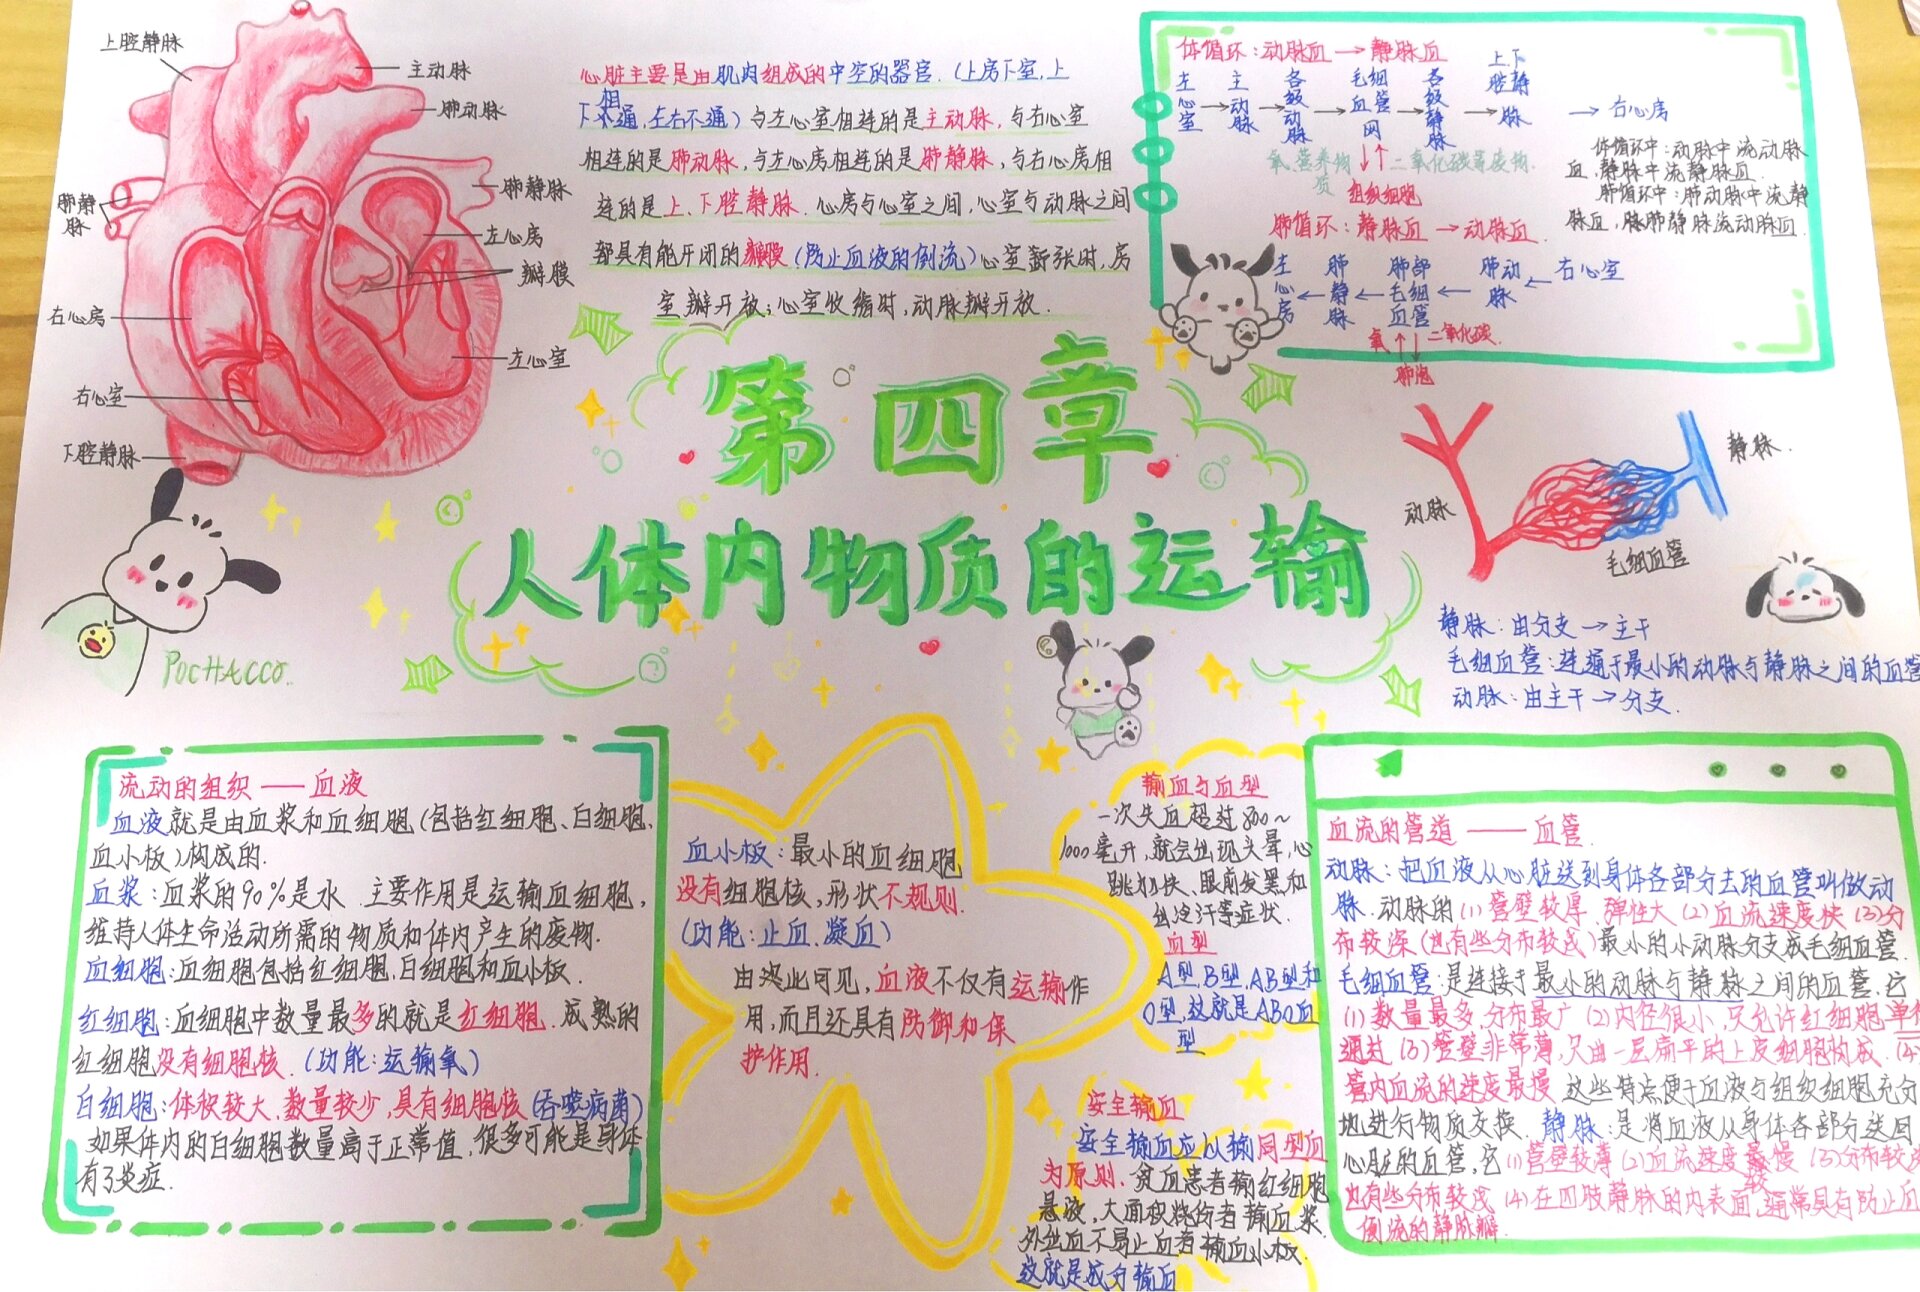 上腔静脉
主动脉
肺动脉
肺静脉
肺静
脉
左心房
瓣膜
右心房
左心室
右心室
下腔静脉
心脏主要是由肌肉组成的中空的器官.(上房下室,上
下相通,左右不通)与左心室相连的是主动脉,与右心室
相连的是肺动脉,与左心房相连的是肺静脉,与右心房相
连的是上、下腔静脉.心房与心室之间,心室与动脉之间
都具有能开闭的瓣膜(防止血液的倒流)心室舒张时,房
室瓣开放;心室收缩时,动脉瓣开放.
体循环:动脉血→静脉血
左心室→主动脉→各级动脉→毛细血管网→各级静脉→上、下腔静脉→右心房
氧、营养物质
二氧化碳等废物.
组织细胞
体循环中:动脉中流动脉
血,静脉中流静脉血.
肺循环中:肺动脉中流静
脉血,肺静脉流动脉血.
肺循环:静脉血→动脉血.
左心房←肺静脉←肺部毛细血管←肺动脉←右心室
氧
二氧化碳.
肺泡
第四章
人体内物质的运输
动脉
静脉.
毛细血管
静脉:由分支→主干
毛细血管:连通于最小的动脉与静脉之间的血管
动脉:由主干→分支.
POCHACCO.
流动的组织——血液
血液就是由血浆和血细胞(包括红细胞、白细胞、
血小板)构成的.
血浆:血浆的90%是水 主要作用是运输血细胞,
维持人体生命活动所需的物质和体内产生的废物.
血细胞:血细胞包括红细胞,白细胞和血小板.
红细胞:血细胞中数量最多的就是红细胞.成熟的
红细胞没有细胞核.(功能:运输氧)
白细胞:体积较大、数量较少,具有细胞核(吞噬病菌)
如果体内的白细胞数量高于正常值,很多可能是身体
有了炎症.
血小板:最小的血细胞
没有细胞核,形状不规则.
(功能:止血、凝血)
由此可见,血液不仅有运输作
用,而且还具有防御和保
护作用.
输血与血型
一次失血超过800~
1000毫升,就会出现头晕,心
跳加快、眼前发黑和
出冷汗等症状.
血型
A型,B型,AB型和
O型,这就是ABO血
型
安全输血
安全输血应以输同型血
为原则.贫血患者输红细胞
悬液,大面积烧伤者输血浆
外出血不易止血者输血小板.
这就是成分输血
血流的管道——血管.
动脉:把血液从心脏送到身体各部分去的血管叫做动
脉.动脉的(1)管壁较厚、弹性大(2)血流速度快(3)分
布较深(也有些分布较浅)最小的小动脉分支成毛细血管.
毛细血管:是连接于最小的动脉与静脉之间的血管.它
(1)数量最多,分布最广(2)内径很小,只允许红细胞单行
通过(3)管壁非常薄,只由一层扁平的上皮细胞构成.(4)
管内血流的速度最慢 这些特点便于血液与组织细胞充分
地进行物质交换.静脉:是将血液从身体各部分送回
心脏的血管,它(1)管壁较薄(2)血流速度较慢(3)分布较浅
也有些分布较浅(4)在四肢静脉的内表面,通常具有防止血
倒流的静脉瓣.